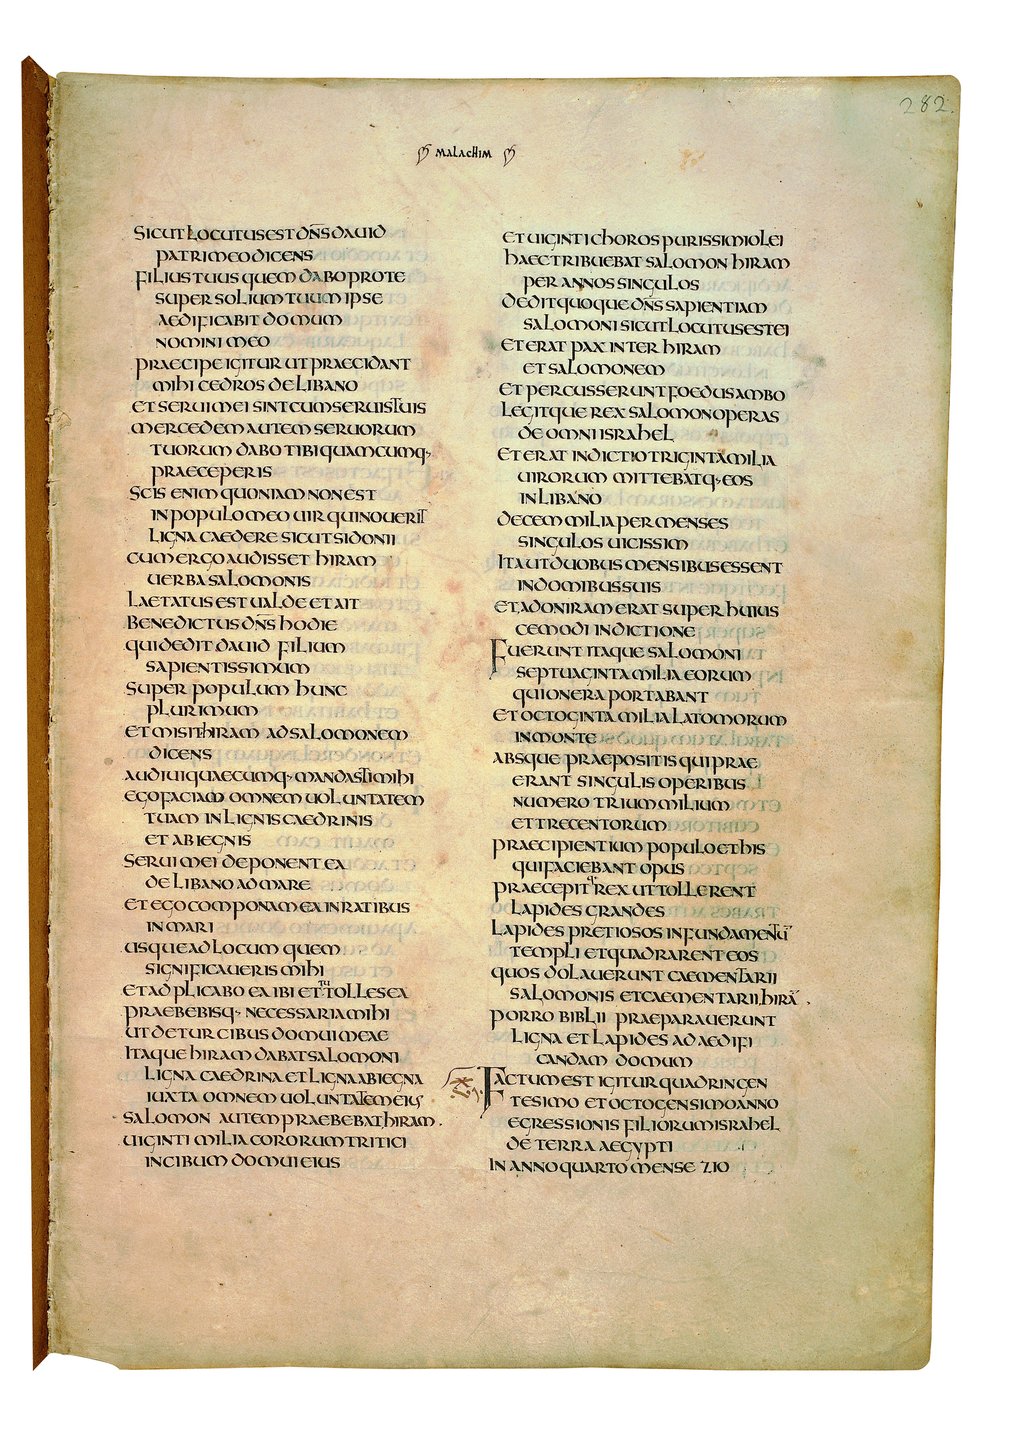 282.
MALACHIM
SICUT LOCUTUS EST DN̄S DAUID
PATRI MEO DICENS
FILIUS TUUS QUEM DABO PRO TE
SUPER SOLIUM TUUM IPSE
AEDIFICABIT DOMUM
NOMINI MEO
PRAECIPE IGITUR UT PRAECIDANT
MIHI CEDROS DE LIBANO
ET SERUI MEI SINT CUM SERUIS TUIS
MERCEDEM AUTEM SERUORUM
TUORUM DABO TIBI QUAMCUMQ·
PRAECEPERIS
SCIS ENIM QUONIAM NON EST
IN POPULO MEO UIR QUI NOUERIT
LIGNA CAEDERE SICUT SIDONII
CUM ERGO AUDISSET HIRAM
UERBA SALOMONIS
LAETATUS EST UALDE ET AIT
BENEDICTUS DN̄S HODIE
QUI DEDIT DAUID FILIUM
SAPIENTISSIMUM
SUPER POPULUM HUNC
PLURIMUM
ET MISIT HIRAM AD SALOMONEM
DICENS
AUDIUI QUAECUMQ· MANDASTI MIHI
EGO FACIAM OMNEM UOLUNTATEM
TUAM IN LIGNIS CAEDRINIS
ET ABIEGNIS
SERUI MEI DEPONENT EA
DE LIBANO AD MARE
ET EGO COMPONAM EA IN RATIBUS
IN MARI
USQUE AD LOCUM QUEM
SIGNIFICAUERIS MIHI
ET ADPLICABO EA IBI ET TU TOLLES EA
PRAEBEBISQ· NECESSARIA MIHI
UT DETUR CIBUS DOMUI MEAE
ITAQUE HIRAM DABAT SALOMONI
LIGNA CAEDRINA ET LIGNA ABIEGNA
IUXTA OMNEM UOLUNTATEM EIUS
SALOMON AUTEM PRAEBEBAT HIRAM
UIGINTI MILIA CORORUM TRITICI
IN CIBUM DOMUI EIUS
ET UIGINTI CHOROS PURISSIMI OLEI
HAEC TRIBUEBAT SALOMON HIRAM
PER ANNOS SINGULOS
DEDIT QUOQUE DN̄S SAPIENTIAM
SALOMONI SICUT LOCUTUS EST EI
ET ERAT PAX INTER HIRAM
ET SALOMONEM
ET PERCUSSERUNT FOEDUS AMBO
LEGITQUE REX SALOMON OPERAS
DE OMNI ISRAHEL
ET ERAT INDICTIO TRIGINTA MILIA
UIRORUM MITTEBATQ· EOS
IN LIBANO
DECEM MILIA PER MENSES
SINGULOS UICISSIM
ITA UT DUOBUS MENSIBUS ESSENT
IN DOMIBUS SUIS
ET ADONIRAM ERAT SUPER HUIUS
CEMODI INDICTIONE
FUERUNT ITAQUE SALOMONI
SEPTUAGINTA MILIA EORUM
QUI ONERA PORTABANT
ET OCTOGINTA MILIA LATOMORUM
IN MONTE
ABSQUE PRAEPOSITIS QUI PRAE
ERANT SINGULIS OPERIBUS
NUMERO TRIUM MILIUM
ET TRECENTORUM
PRAECIPIENTIUM POPULO ET HIS
QUI FACIEBANT OPUS
PRAECEPITQ· REX UT TOLLERENT
LAPIDES GRANDES
LAPIDES PRETIOSOS IN FUNDAMENTŪ
TEMPLI ET QUADRARENT EOS
QUOS DOLAUERUNT CAEMENTARII
SALOMONIS ET CAEMENTARII HIRĀ
PORRO BIBLII PRAEPARAUERUNT
LIGNA ET LAPIDES AD AEDIFI
CANDAM DOMUM
FACTUM EST IGITUR QUADRINGEN
TESIMO ET OCTOGENSIMO ANNO
EGRESSIONIS FILIORUM ISRAHEL
DE TERRA AEGYPTI
IN ANNO QUARTO MENSE ZIO